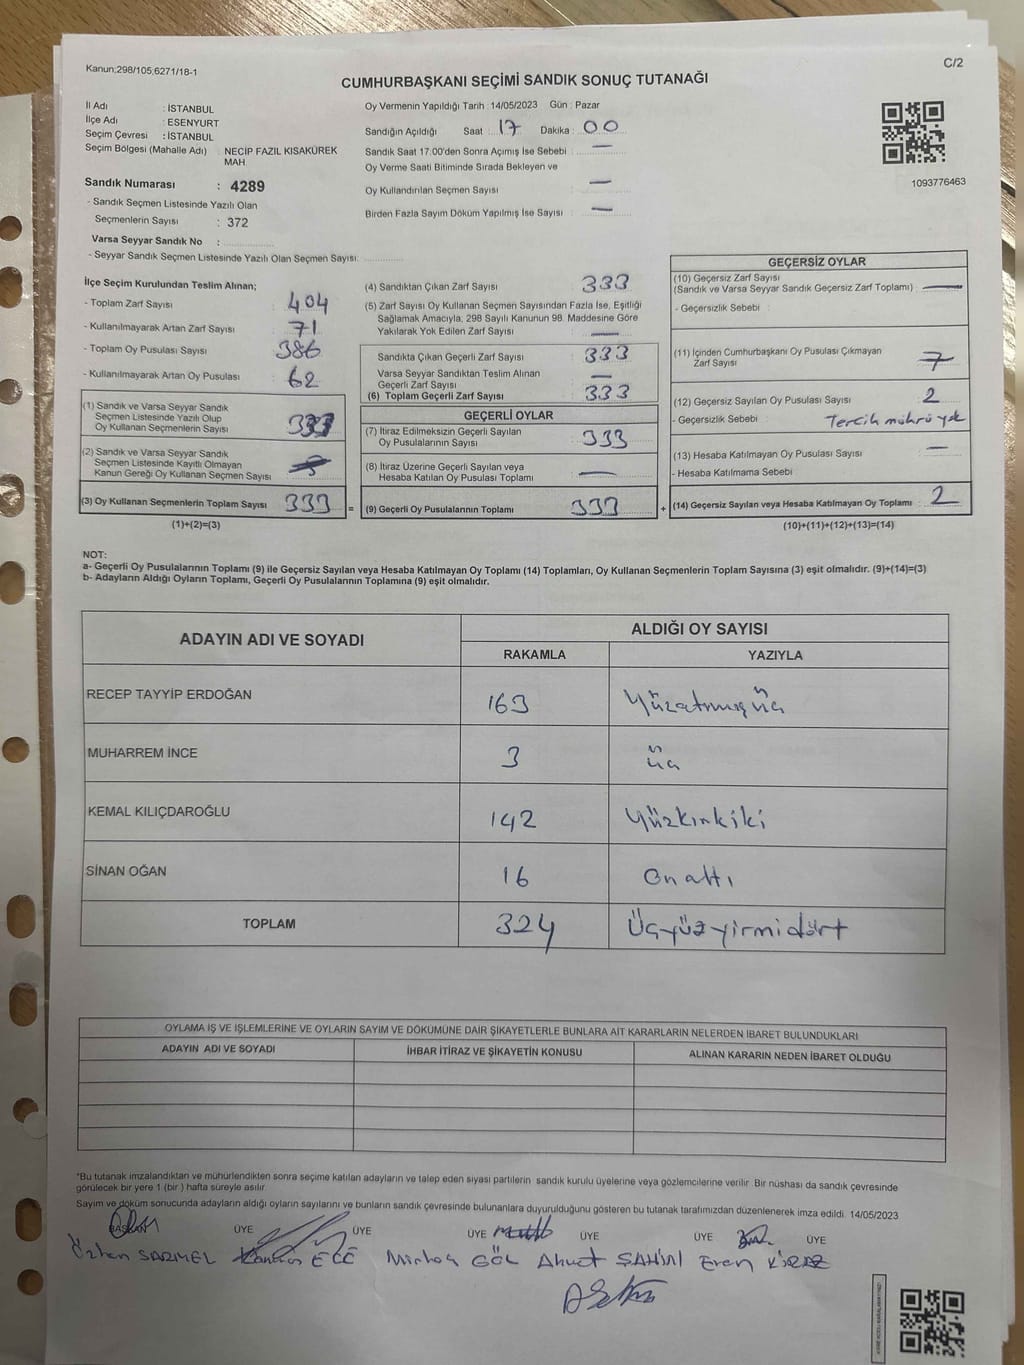 Kanun;298/105,6271/18-1
C/2
CUMHURBAŞKANI SEÇİMİ SANDIK SONUÇ TUTANAĞI
İl Adı : İSTANBUL
İlçe Adı : ESENYURT
Seçim Çevresi : İSTANBUL
Seçim Bölgesi (Mahalle Adı) : NECİP FAZIL KISAKÜREK
MAH
Sandık Numarası : 4289
- Sandık Seçmen Listesinde Yazılı Olan
Seçmenlerin Sayısı : 372
Varsa Seyyar Sandık No :
- Seyyar Sandık Seçmen Listesinde Yazılı Olan Seçmen Sayısı:
Oy Vermenin Yapıldığı Tarih : 14/05/2023 Gün : Pazar
Sandığın Açıldığı Saat : 17 Dakika : 00
Sandık Saat 17:00'den Sonra Açımış İse Sebebi : —
Oy Verme Saati Bitiminde Sırada Bekleyen ve
Oy Kullandırılan Seçmen Sayısı : —
Birden Fazla Sayım Döküm Yapılmış İse Sayısı : —
1093776463
İlçe Seçim Kurulundan Teslim Alınan;
- Toplam Zarf Sayısı : 404
- Kullanılmayarak Artan Zarf Sayısı : 71
- Toplam Oy Pusulası Sayısı : 386
- Kullanılmayarak Artan Oy Pusulası : 62
(1) Sandık ve Varsa Seyyar Sandık
Seçmen Listesinde Yazılı Olup
Oy Kullanan Seçmenlerin Sayısı : 333
(2) Sandık ve Varsa Seyyar Sandık
Seçmen Listesinde Kayıtlı Olmayan
Kanun Gereği Oy Kullanan Seçmen Sayısı :
(3) Oy Kullanan Seçmenlerin Toplam Sayısı : 333
(1)+(2)=(3)
(4) Sandıktan Çıkan Zarf Sayısı : 333
(5) Zarf Sayısı Oy Kullanan Seçmen Sayısından Fazla İse, Eşitliği
Sağlamak Amacıyla, 298 Sayılı Kanunun 98. Maddesine Göre
Yakılarak Yok Edilen Zarf Sayısı : —
Sandıkta Çıkan Geçerli Zarf Sayısı : 333
Varsa Seyyar Sandıktan Teslim Alınan
Geçerli Zarf Sayısı : —
(6) Toplam Geçerli Zarf Sayısı : 333
GEÇERLİ OYLAR
(7) İtiraz Edilmeksizin Geçerli Sayılan
Oy Pusulalarının Sayısı : 333
(8) İtiraz Üzerine Geçerli Sayılan veya
Hesaba Katılan Oy Pusulası Toplamı : —
= (9) Geçerli Oy Pusulalarının Toplamı : 333
GEÇERSİZ OYLAR
(10) Geçersiz Zarf Sayısı
(Sandık ve Varsa Seyyar Sandık Geçersiz Zarf Toplamı) : —
- Geçersizlik Sebebi :
(11) İçinden Cumhurbaşkanı Oy Pusulası Çıkmayan
Zarf Sayısı : 7
(12) Geçersiz Sayılan Oy Pusulası Sayısı : 2
- Geçersizlik Sebebi : Tercih mührü yok
(13) Hesaba Katılmayan Oy Pusulası Sayısı : —
- Hesaba Katılmama Sebebi
+ (14) Geçersiz Sayılan veya Hesaba Katılmayan Oy Toplamı : 2
(10)+(11)+(12)+(13)=(14)
NOT:
a- Geçerli Oy Pusulalarının Toplamı (9) ile Geçersiz Sayılan veya Hesaba Katılmayan Oy Toplamı (14) Toplamları, Oy Kullanan Seçmenlerin Toplam Sayısına (3) eşit olmalıdır. (9)+(14)=(3)
b- Adayların Aldığı Oyların Toplamı, Geçerli Oy Pusulalarının Toplamına (9) eşit olmalıdır.
ADAYIN ADI VE SOYADI
ALDIĞI OY SAYISI
RAKAMLA YAZIYLA
RECEP TAYYİP ERDOĞAN 163 Yüzatmışüç
MUHARREM İNCE 3 üç
KEMAL KILIÇDAROĞLU 142 Yüzkırkiki
SİNAN OĞAN 16 On altı
TOPLAM 324 Üçyüzyirmidört
OYLAMA İŞ VE İŞLEMLERİNE VE OYLARIN SAYIM VE DÖKÜMÜNE DAİR ŞİKAYETLERLE BUNLARA AİT KARARLARIN NELERDEN İBARET BULUNDUKLARI
ADAYIN ADI VE SOYADI İHBAR İTİRAZ VE ŞİKAYETİN KONUSU ALINAN KARARIN NEDEN İBARET OLDUĞU
*Bu tutanak imzalandıktan ve mühürlendikten sonra seçime katılan adayların ve talep eden siyasi partilerin sandık kurulu üyelerine veya gözlemcilerine verilir. Bir nüshası da sandık çevresinde
görülecek bir yere 1 (bir ) hafta süreyle asılır.
Sayım ve döküm sonucunda adayların aldığı oyların sayılarını ve bunların sandık çevresinde bulunanlara duyurulduğunu gösteren bu tutanak tarafımızdan düzenlenerek imza edildi. 14/05/2023
BAŞKAN ÜYE ÜYE ÜYE ÜYE ÜYE ÜYE
Özhan SARMEL ECE GÖL Ahmet ŞAHİN Eren KİRAZ